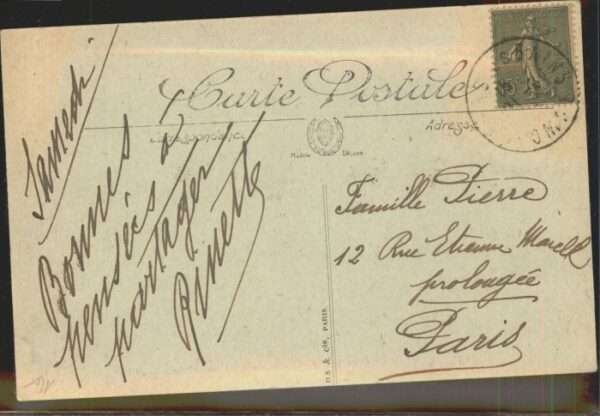 Carte Postale
Correspondance
Adresse
Samedi
Bonnes
pensées à
partager
Ninette
Famille Pierre
12 Rue Etienne Marcel
prolongée
Paris
& Cie, PARIS